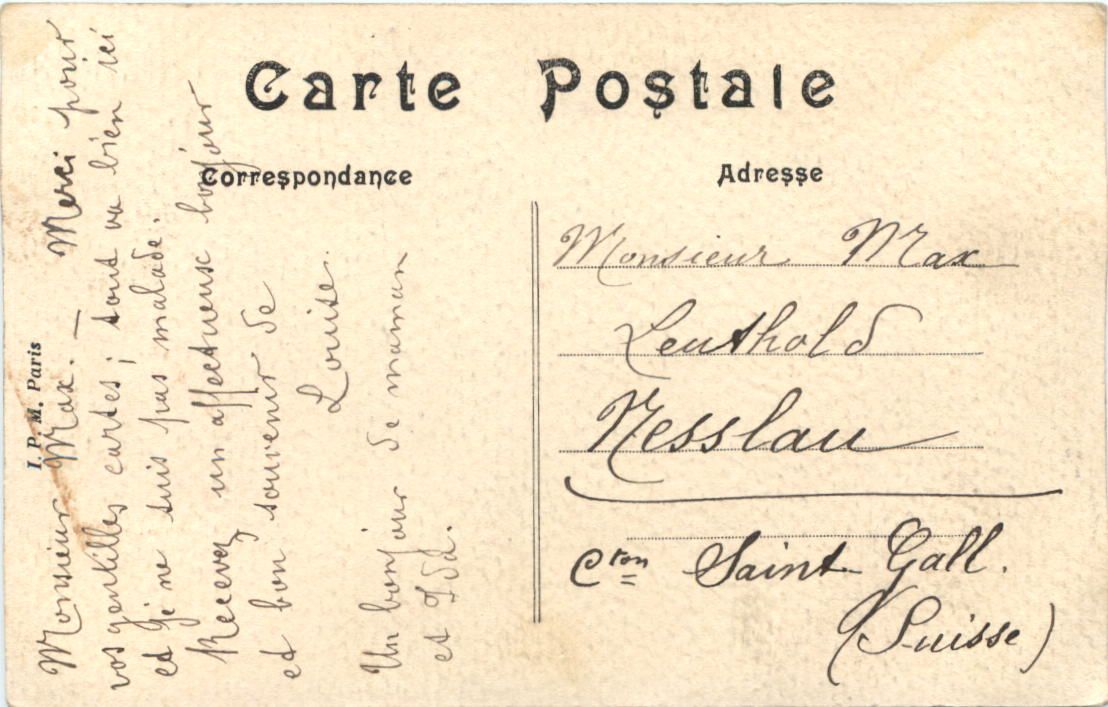 Carte Postale
Correspondance
Adresse
I. P. M. Paris
Monsieur Max. — Merci pour
vos gentilles cartes ; tout va bien ici
et je ne suis pas malade.
Recevez un affectueux bonjour
et bon souvenir de
Louise.
Un bonjour de maman
et Ida.
Monsieur Max
Leuthold
Nesslau
Cton Saint Gall.
(Suisse)